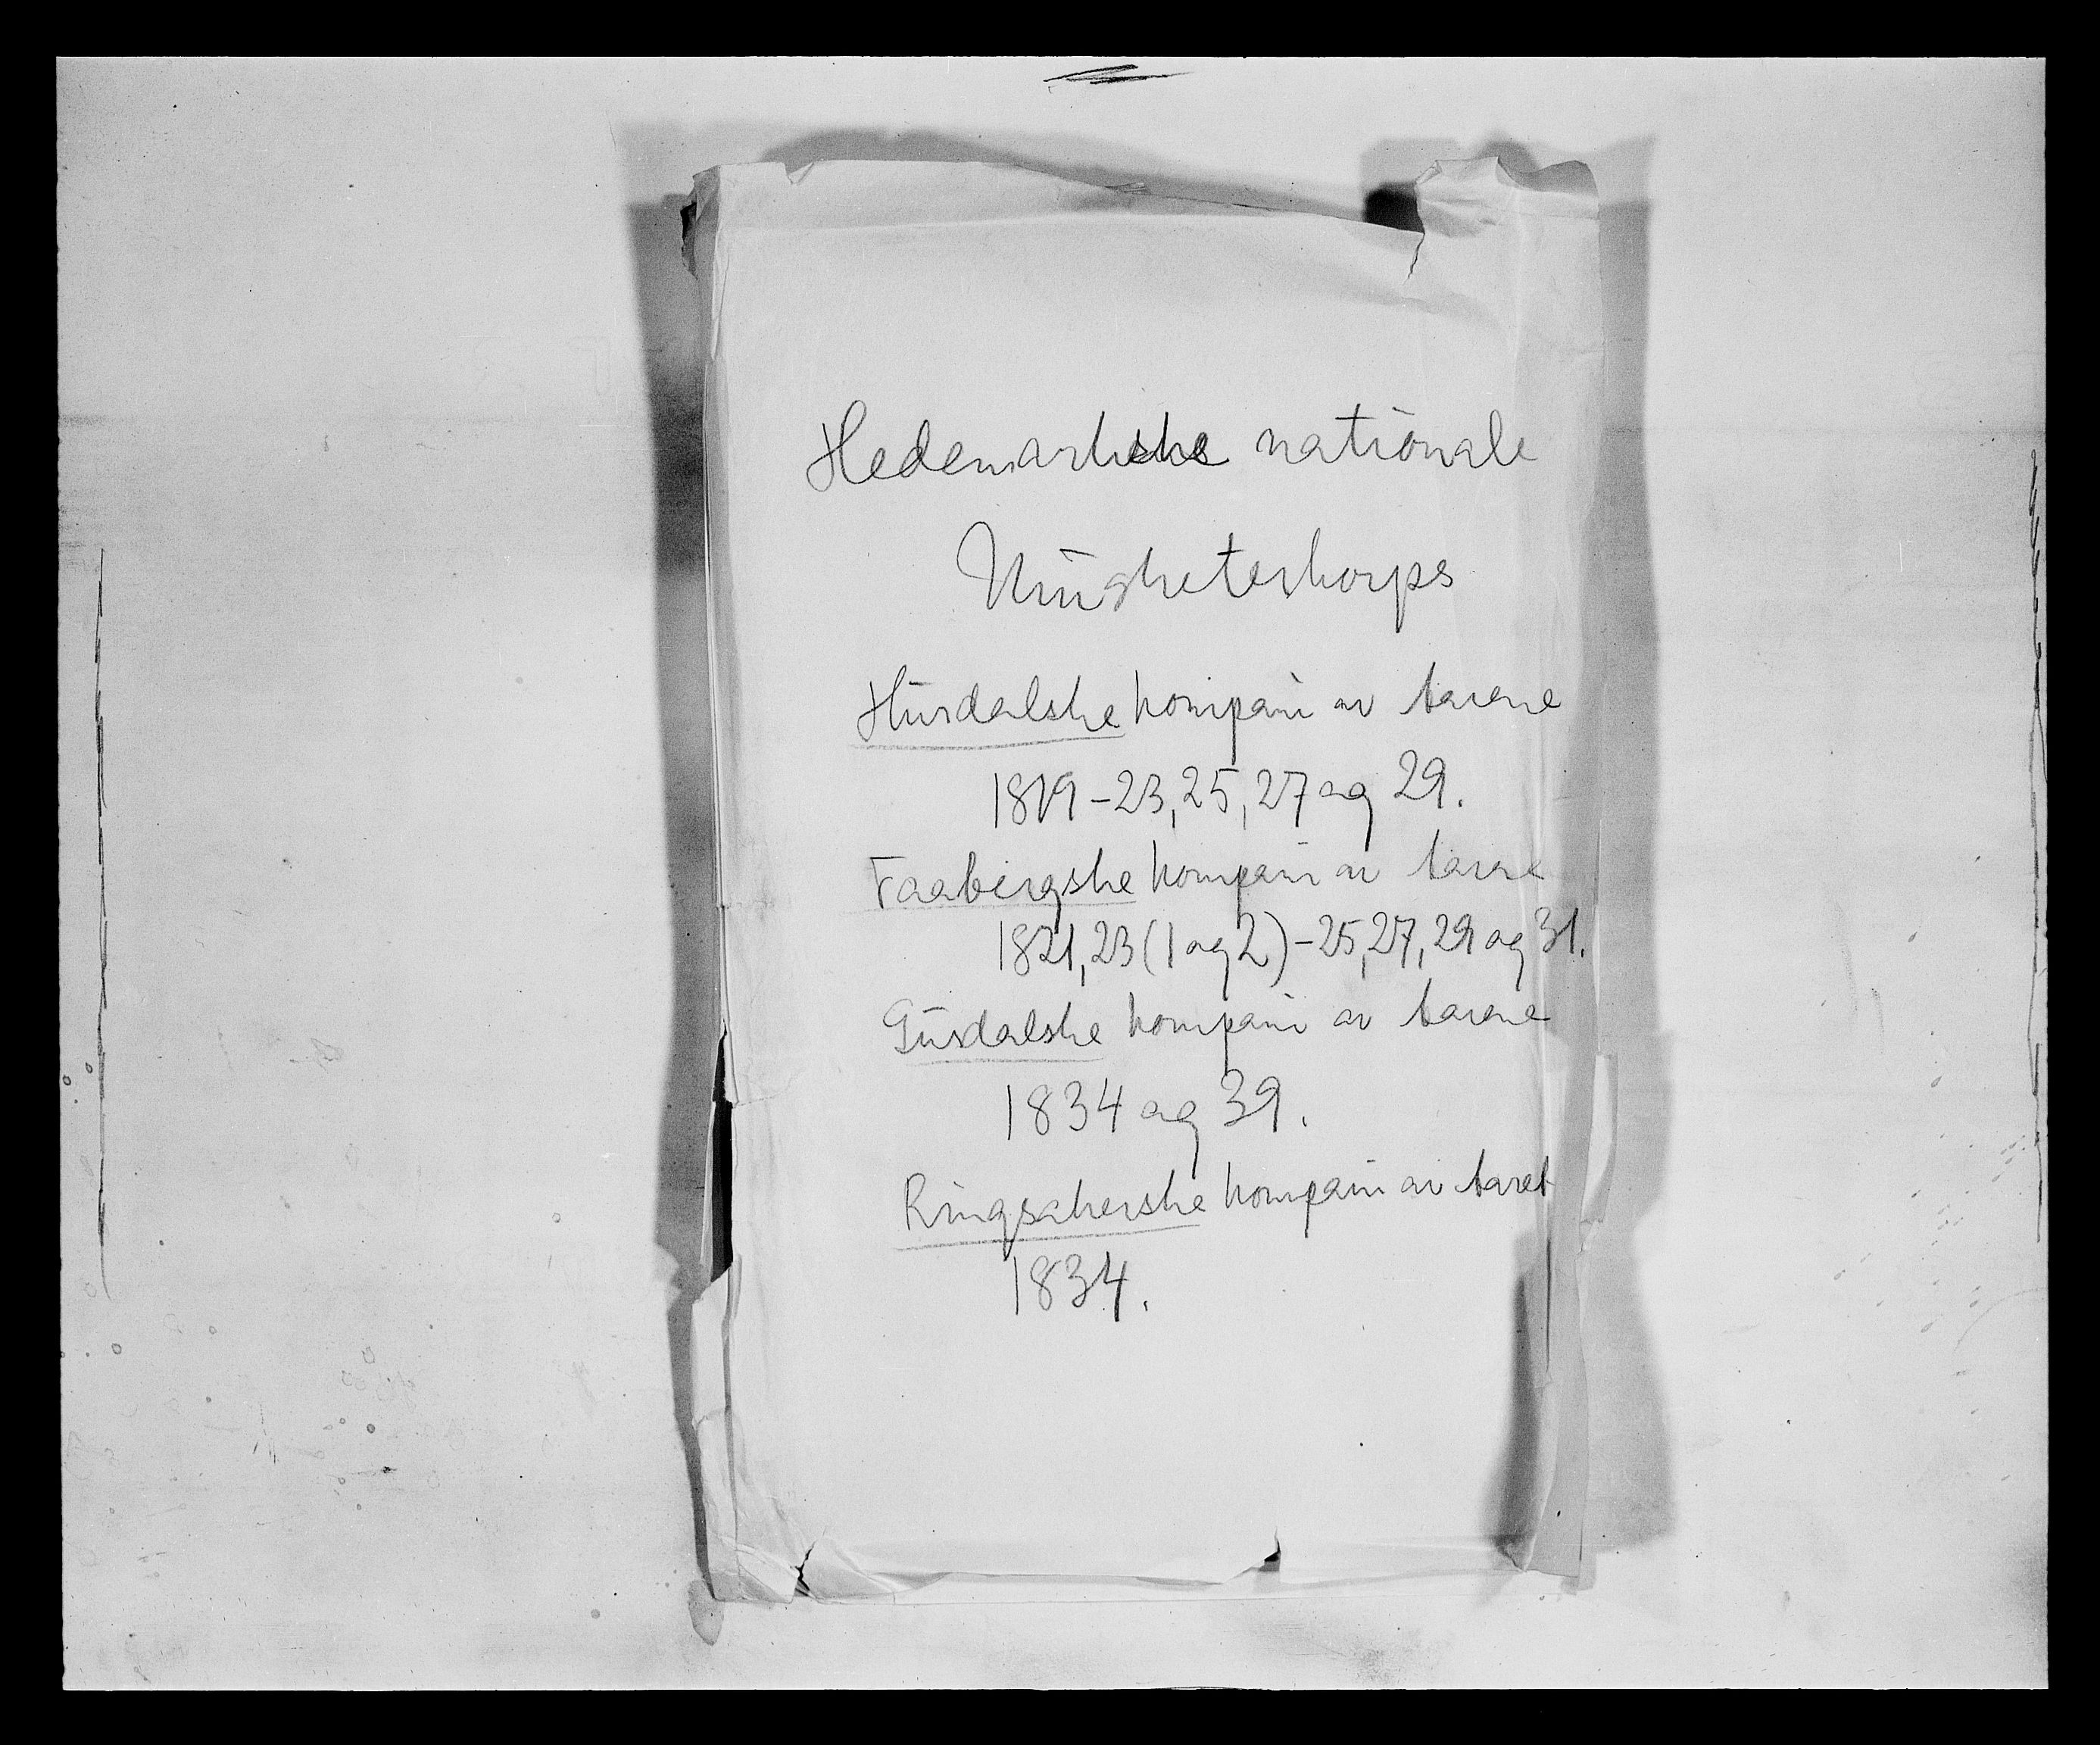 Hedemarkske nationale
Musketerkorps
Hurdalske kompani av aarene
1819-23, 25, 27 og 29.
Faabergske kompani av aarene
1821, 23 (1 og 2) - 25, 27, 29 og 31.
Gusdalske kompani av aarene
1834 og 39.
Ringsakerske kompani av aaret
1834.